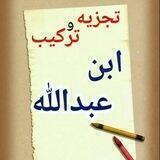 تجزیه
و
ترکیب
ابن
عبدالله